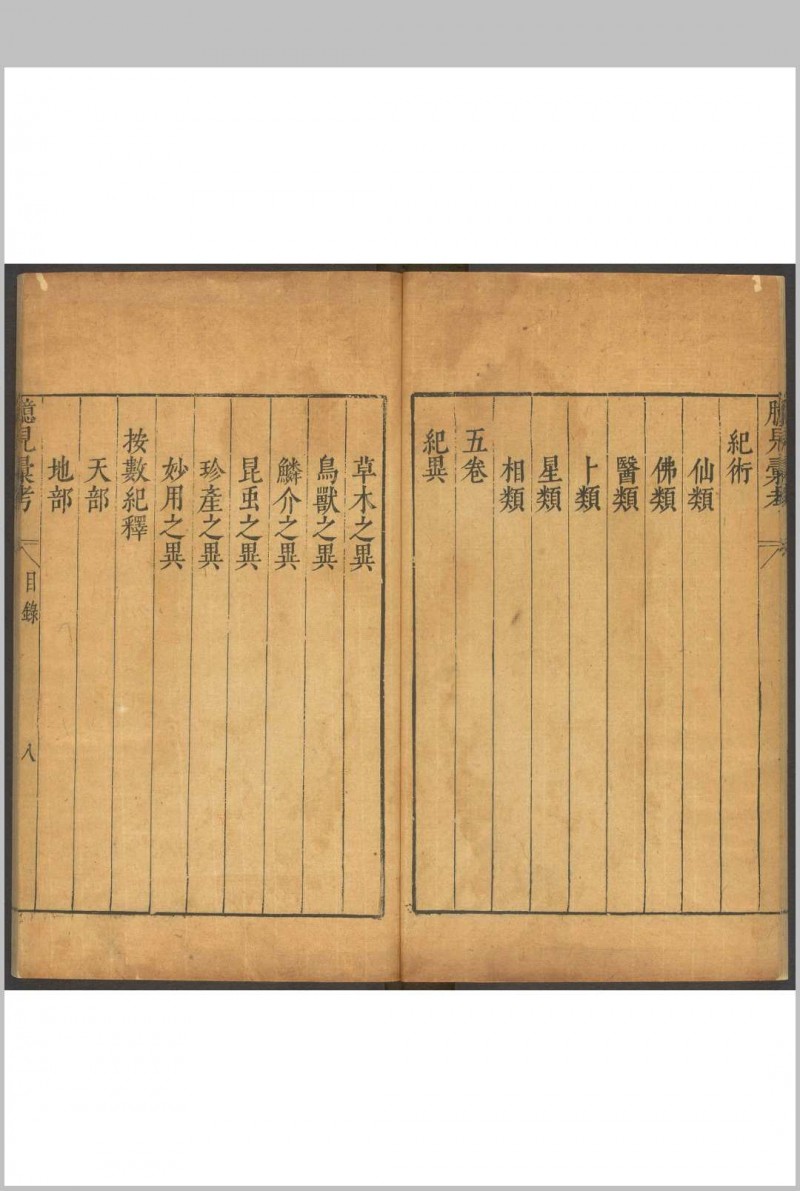 紀術
仙類
佛類
醫類
卜類
星類
相類
五卷
紀異
草木之異
鳥獸之異
鱗介之異
昆䖝之異
珍產之異
妙用之異
按數紀釋
天部
地部
臆見彙考
目錄
八